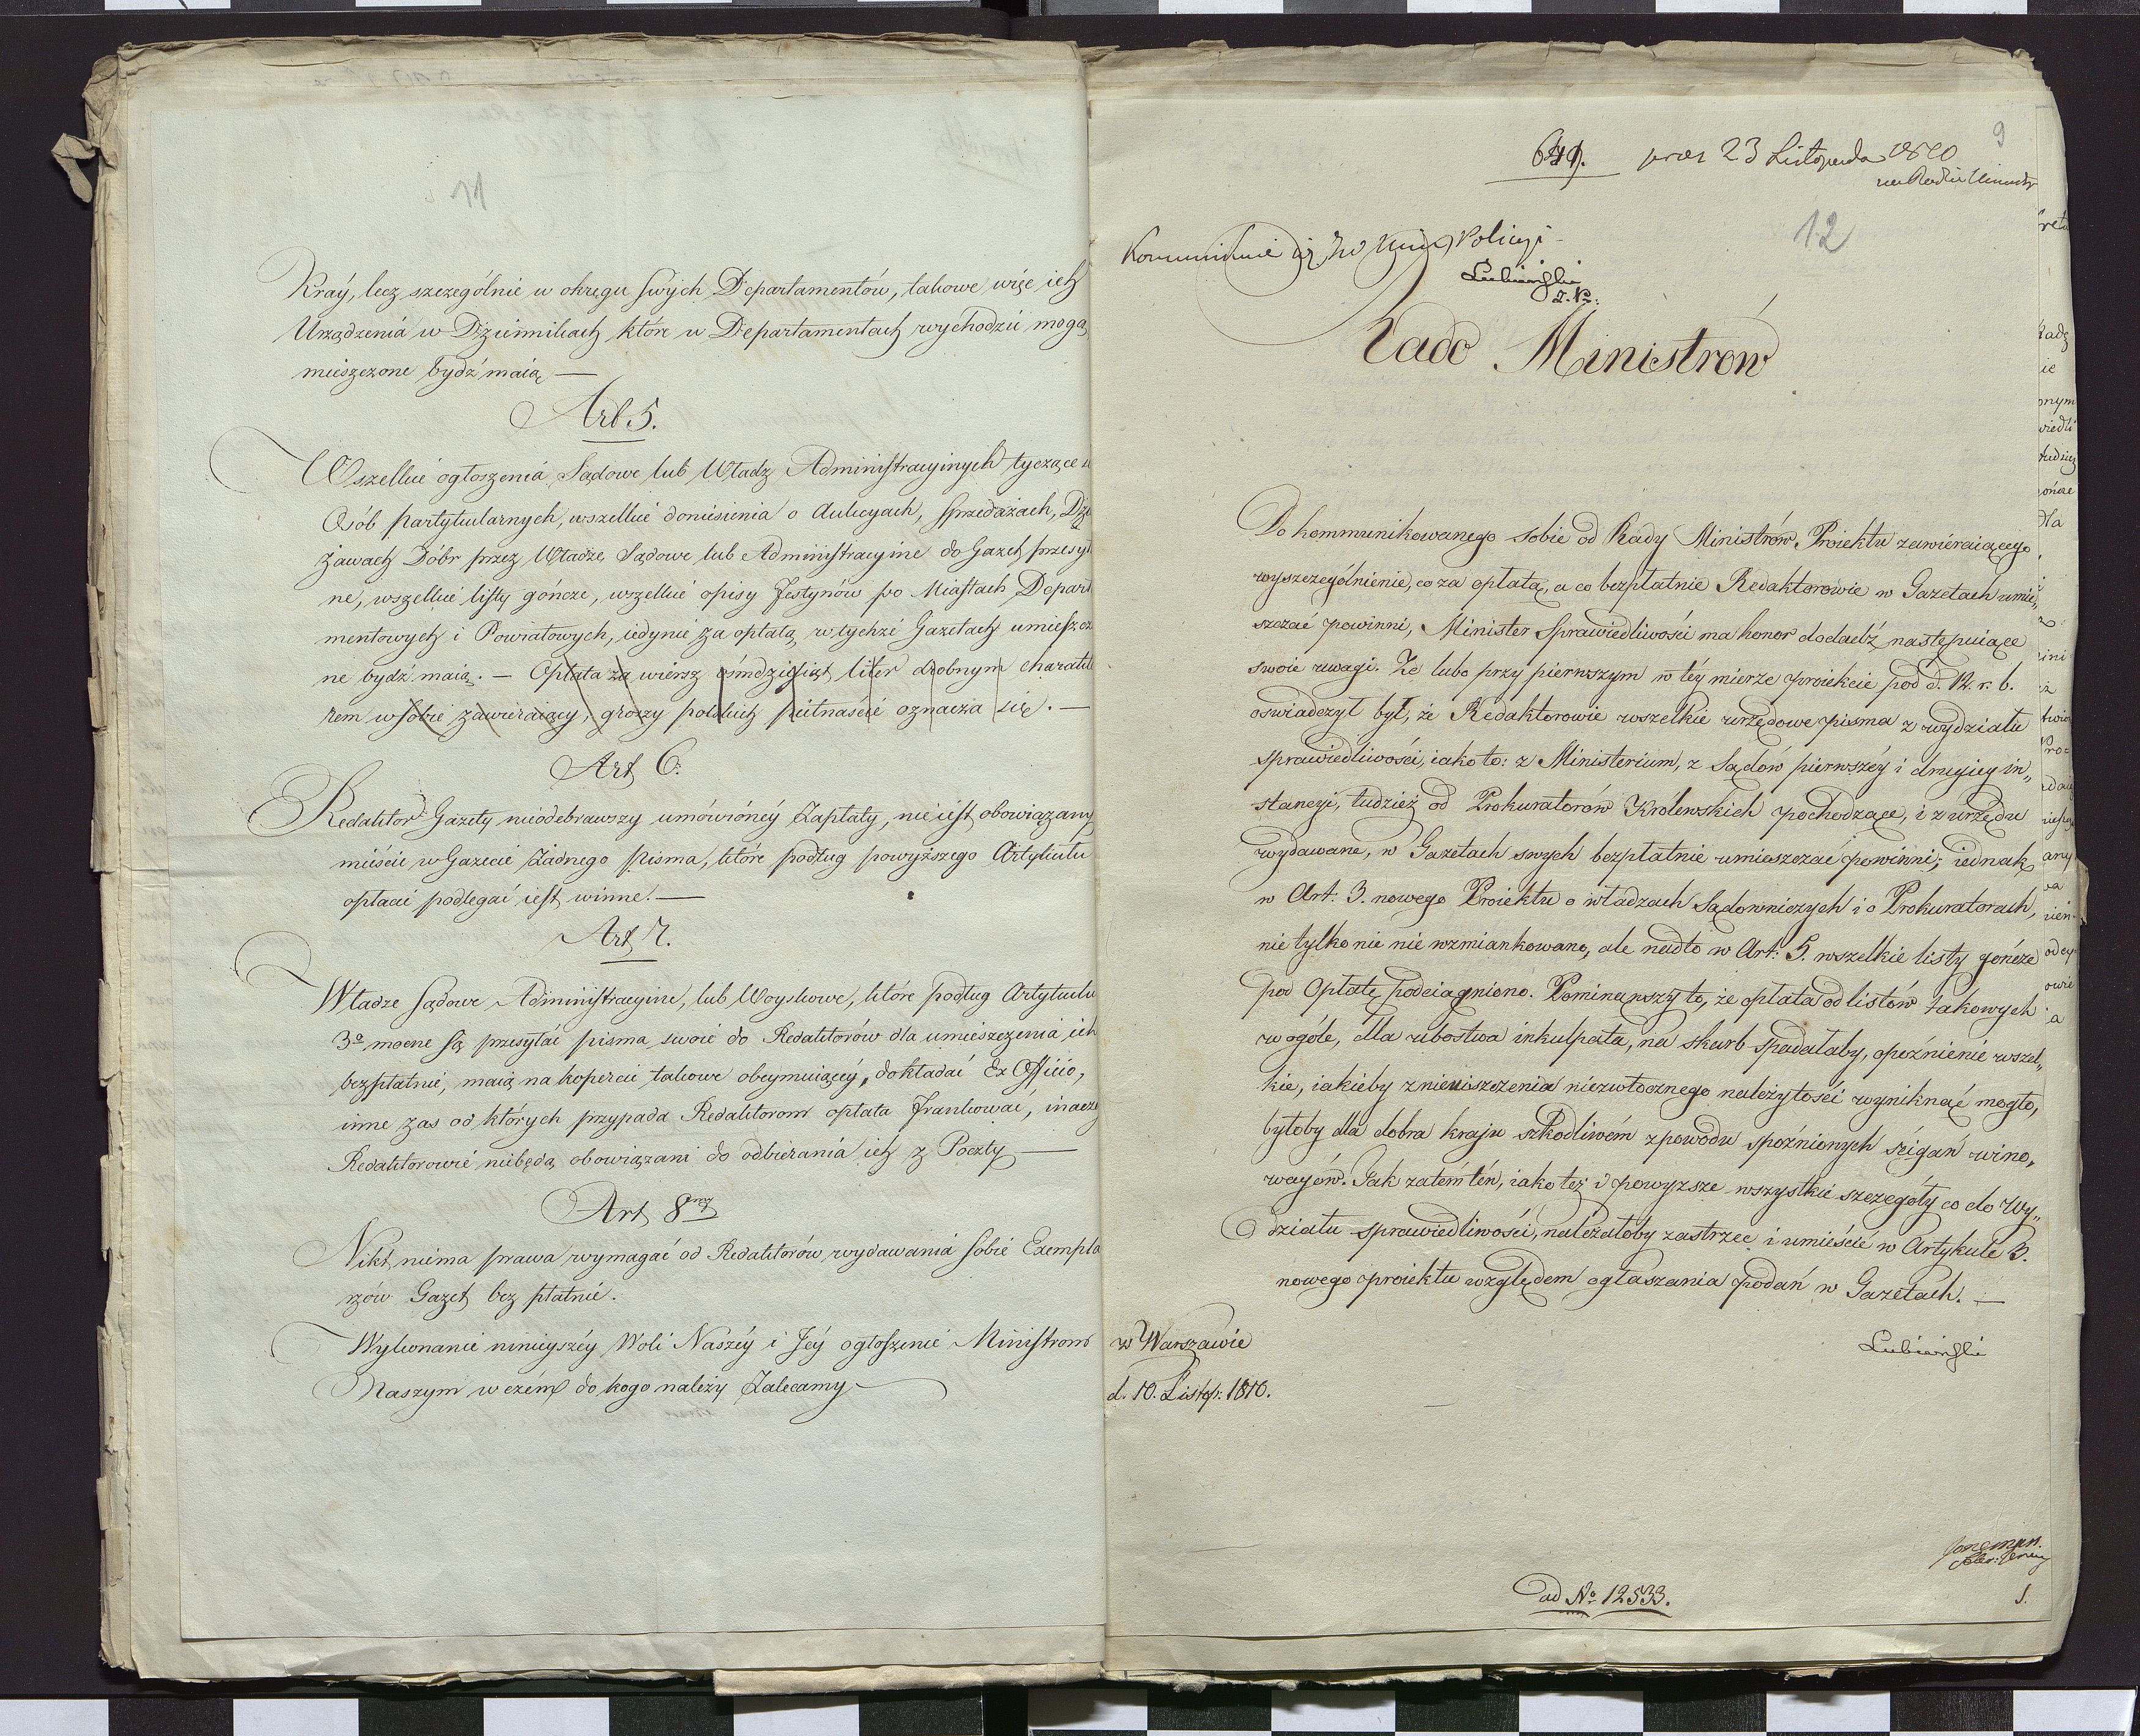 11
Kray, lecz szczególnie w okręgu swych Departamentów, takowe więc ich
Urządzenia w Dziennikach które w Departamentach wychodzić mogą,
mieszczone bydź maią —
Art 5.
Wszelkie ogłoszenia Sądowe lub Władz Administracyinych tyczące
Osób partykularnych, wszelkie doniesienia o Aukcyach, Sprzedażach, Dzie
żawach Dóbr przez Władze Sądowe lub Administracyine do Gazet przesył
ne, wszelkie listy gończe, wszelkie opisy Festynów po Miastach Depart
mentowych i Powiatowych, iedynie za opłatą w tychże Gazetach umieszczo
ne bydź maią. — Opłata za wiersz ośmdziesiąt liter drobnym charakte
rem w sobie zawieraiący, groszy polskich piętnaście oznacza się. —
Art 6.
Redaktor Gazety nieodebrawszy umówionéy Zapłaty, nie iest obowiązany
mieście w Gazecie żadnego pisma, które podług powyższego Artykułu
opłacie podlegać iest winne. —
Art 7.
Władze Sądowe Administracyine, lub Woyskowe, które podług Artykułu
3º mocne są przesyłać pisma swoie do Redaktorów dla umieszczenia ich
bezpłatnie, maią na kopercie takowe obeymuiącéy, dokładać Ex Officio,
inne zas od których przypada Redaktorom opłata frankować, inaczéy
Redaktorowie niebędą obowiązani do odbierania ich z Poczty —
Art 8my
Nikt niema prawa wymagać od Redaktorów wydawania sobie Exempla
rzów Gazet bez płatnie.
Wykonanie ninieyszéy Woli Naszéy i Jéy ogłoszenie Ministrom
Naszym w czém do kogo należy Zalecamy
9
649. 23 Listopada 1810
na Radzie Ministr
12
Policyi
Lubieński
Rado Ministrów
Do kommunikowanego sobie od Rady Ministrów Proiektu zawieraiącego
wyszczególnienie, co za opłatą, a co bezpłatnie Redaktorowie w Gazetach umie„
szczać powinni, Minister Sprawiedliwości ma honor dodadź następuiące
swoie uwagi. Że lubo przy pierwszym w téy mierze proiekcie pod d. 12. r. b.
oświadczył był, że Redaktorowie wszelkie urzędowe pisma z wydziału
sprawiedliwości, iako to: z Ministerium, z Sądów pierwszéy i drugiey in„
stancyi, tudzież od Prokuratorów Królewskich pochodzące, i z urzędu
wydawane, w Gazetach swych bezpłatnie umieszczać powinni; iednak
w Art: 3. nowego Proiektu o władzach Sądowniczych i o Prokuratorach,
nie tylko nic nie wzmiankowano, ale nadto w Art: 5. wszelkie listy gończe
pod Opłatę podciągniono. Pominąwszy to, że opłata od listów takowych
w ogóle, dla ubóstwa inkulpata, na skarb spadałaby, opóźnienie wszel„
kie, iakieby z nieuiszczenia niezwłocznego należytości wyniknąć mogło,
byłoby dla dobra kraju szkodliwém z powodu spoźnionych ścigań wino„
wayców. Jak zatém tén, iako też i powyższe wszystkie szczegóły co do Wy„
działu sprawiedliwości, należałoby zastrzec i umieście w Artykule 3.
nowego proiektu względem ogłaszania podań w Gazetach. —
Lubieński
w Warszawie
d. 10. Listop: 1810.
ad No 12533.
1.